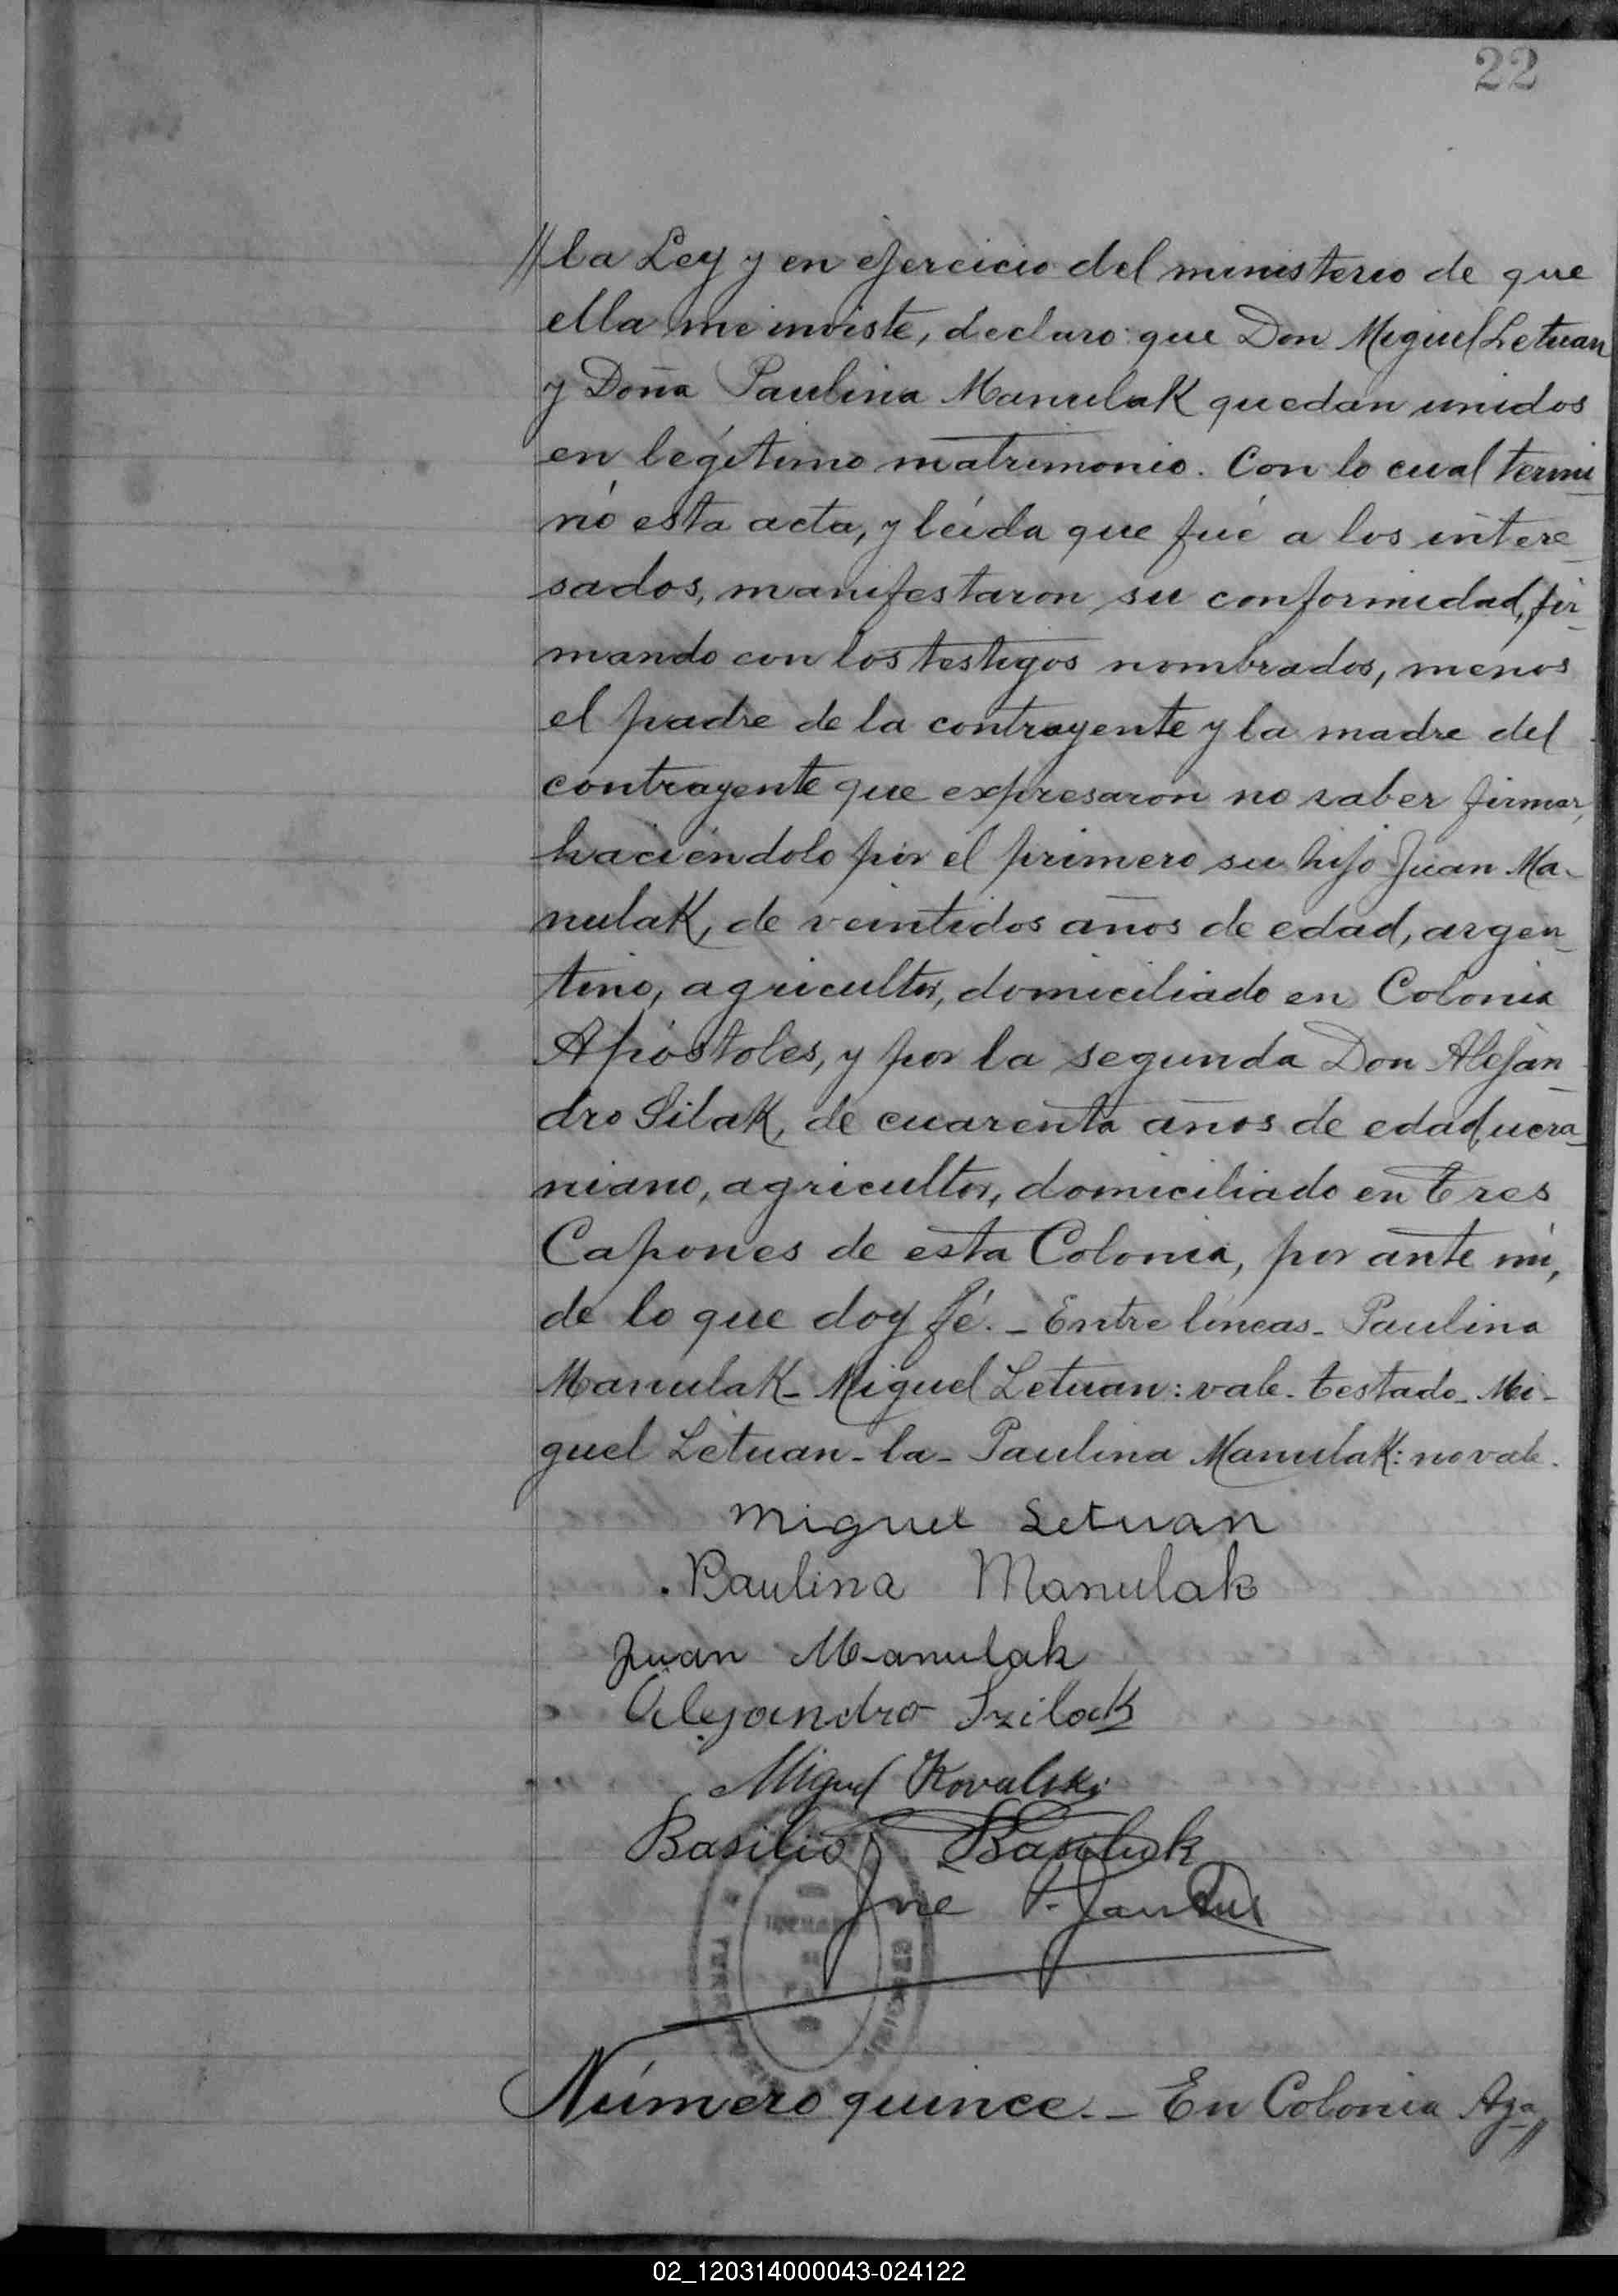 22
//la Ley y en ejercicio del ministerio de que
ella me inviste, declaro: que Don Miguel Letuan
y Doña Paulina Manulak quedan unidos
en legítimo matrimonio. Con lo cual termi_
nó esta acta, y leída que fué a los intere_
sados, manifestaron su conformidad, fir_
mando con los testigos nombrados, menos
el padre de la contrayente y la madre del
contrayente que expresaron no saber firmar,
haciéndolo por el primero su hijo Juan Ma-
nulak, de veintidos años de edad, argen_
tino, agricultor, domiciliado en Colonia
Apóstoles, y por la segunda Don Alejan_
dro Silak, de cuarenta años de edad, ucra_
niano, agricultor, domiciliado en Tres
Capones de esta Colonia, por ante mí,
de lo que doy fé. - Entre líneas - Paulina
Manulak - Miguel Letuan: vale. Testado - Mi-
guel Letuan - la - Paulina Manulak: no vale.
Miguel Letuan
Paulina Manulak
Juan Manulak
Alejandro Szilak
Miguel Kovalski
Basilio
José
Número quince. - En Colonia Aza//
02_120314000043-024122